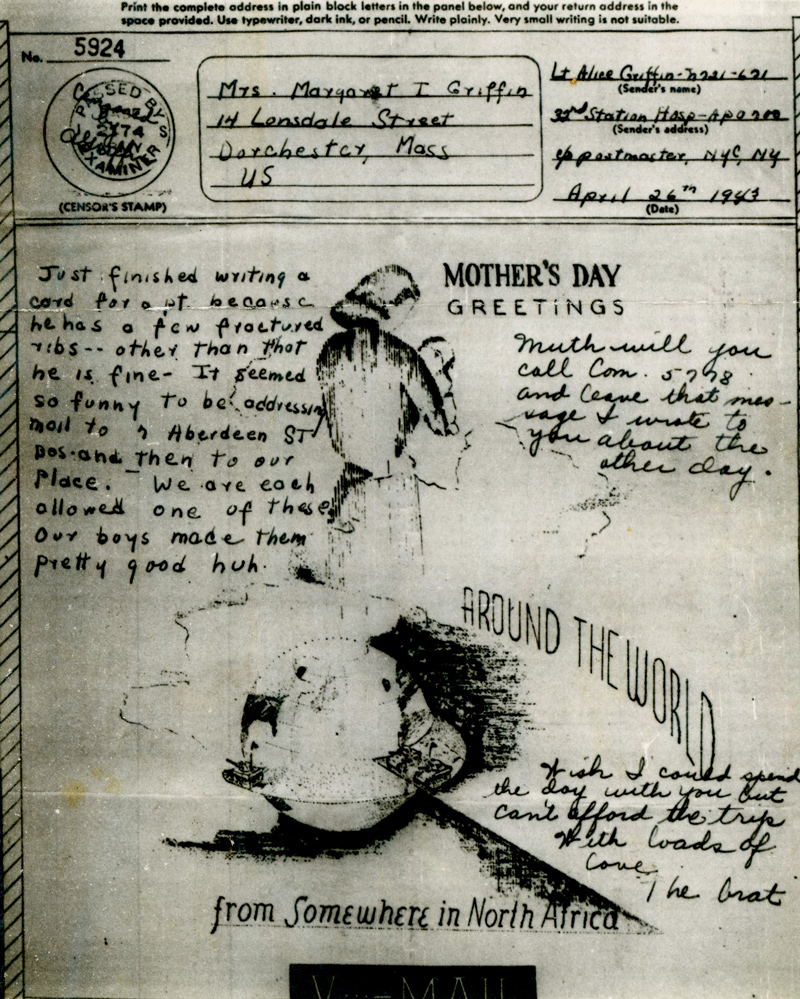 Print the complete address in plain block letters in the panel below, and your return address in the
space provided. Use typewriter, dark ink, or pencil. Write plainly. Very small writing is not suitable.
No. 5924
PASSED BY
EXAMINER
(CENSOR'S STAMP)
Mrs. Margaret T Griffin
14 Lonsdale Street
Dorchester, Mass
US
Lt Alice Griffin-N721-621
(Sender's name)
Station Hosp-APO
(Sender's address)
c/o postmaster, NYC, NY
April 26th 1943
(Date)
Just finished writing a
card for a pt because
he has a few fractured
ribs-- other than that
he is fine- It seemed
so funny to be addressing
mail to Aberdeen ST
Dos. and then to our
Place. - We are each
allowed one of these
Our boys made them
pretty good huh.
MOTHER'S DAY
GREETINGS
Muth will you
call Com. 5778
and leave that mes-
sage I wrote to
you about the
other day.
AROUND THE WORLD
Wish I could spend
the day with you but
can't afford the trip
With loads of
Love
The brat
from Somewhere in North Africa
V...-MAIL